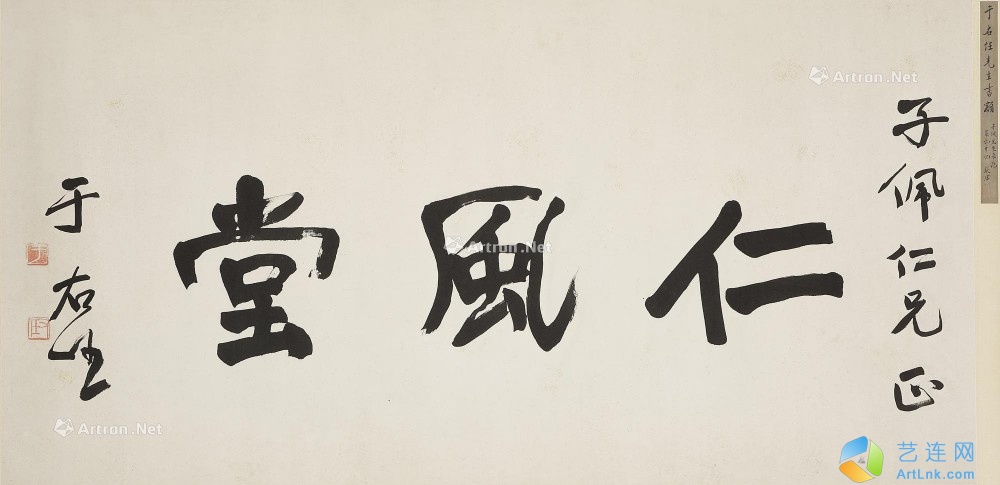 子佩仁兄正
仁風堂
于右任
于右任先生書額
Artron.Net
Artron.Net
Artron.Net
艺连网
ArtLnk.com